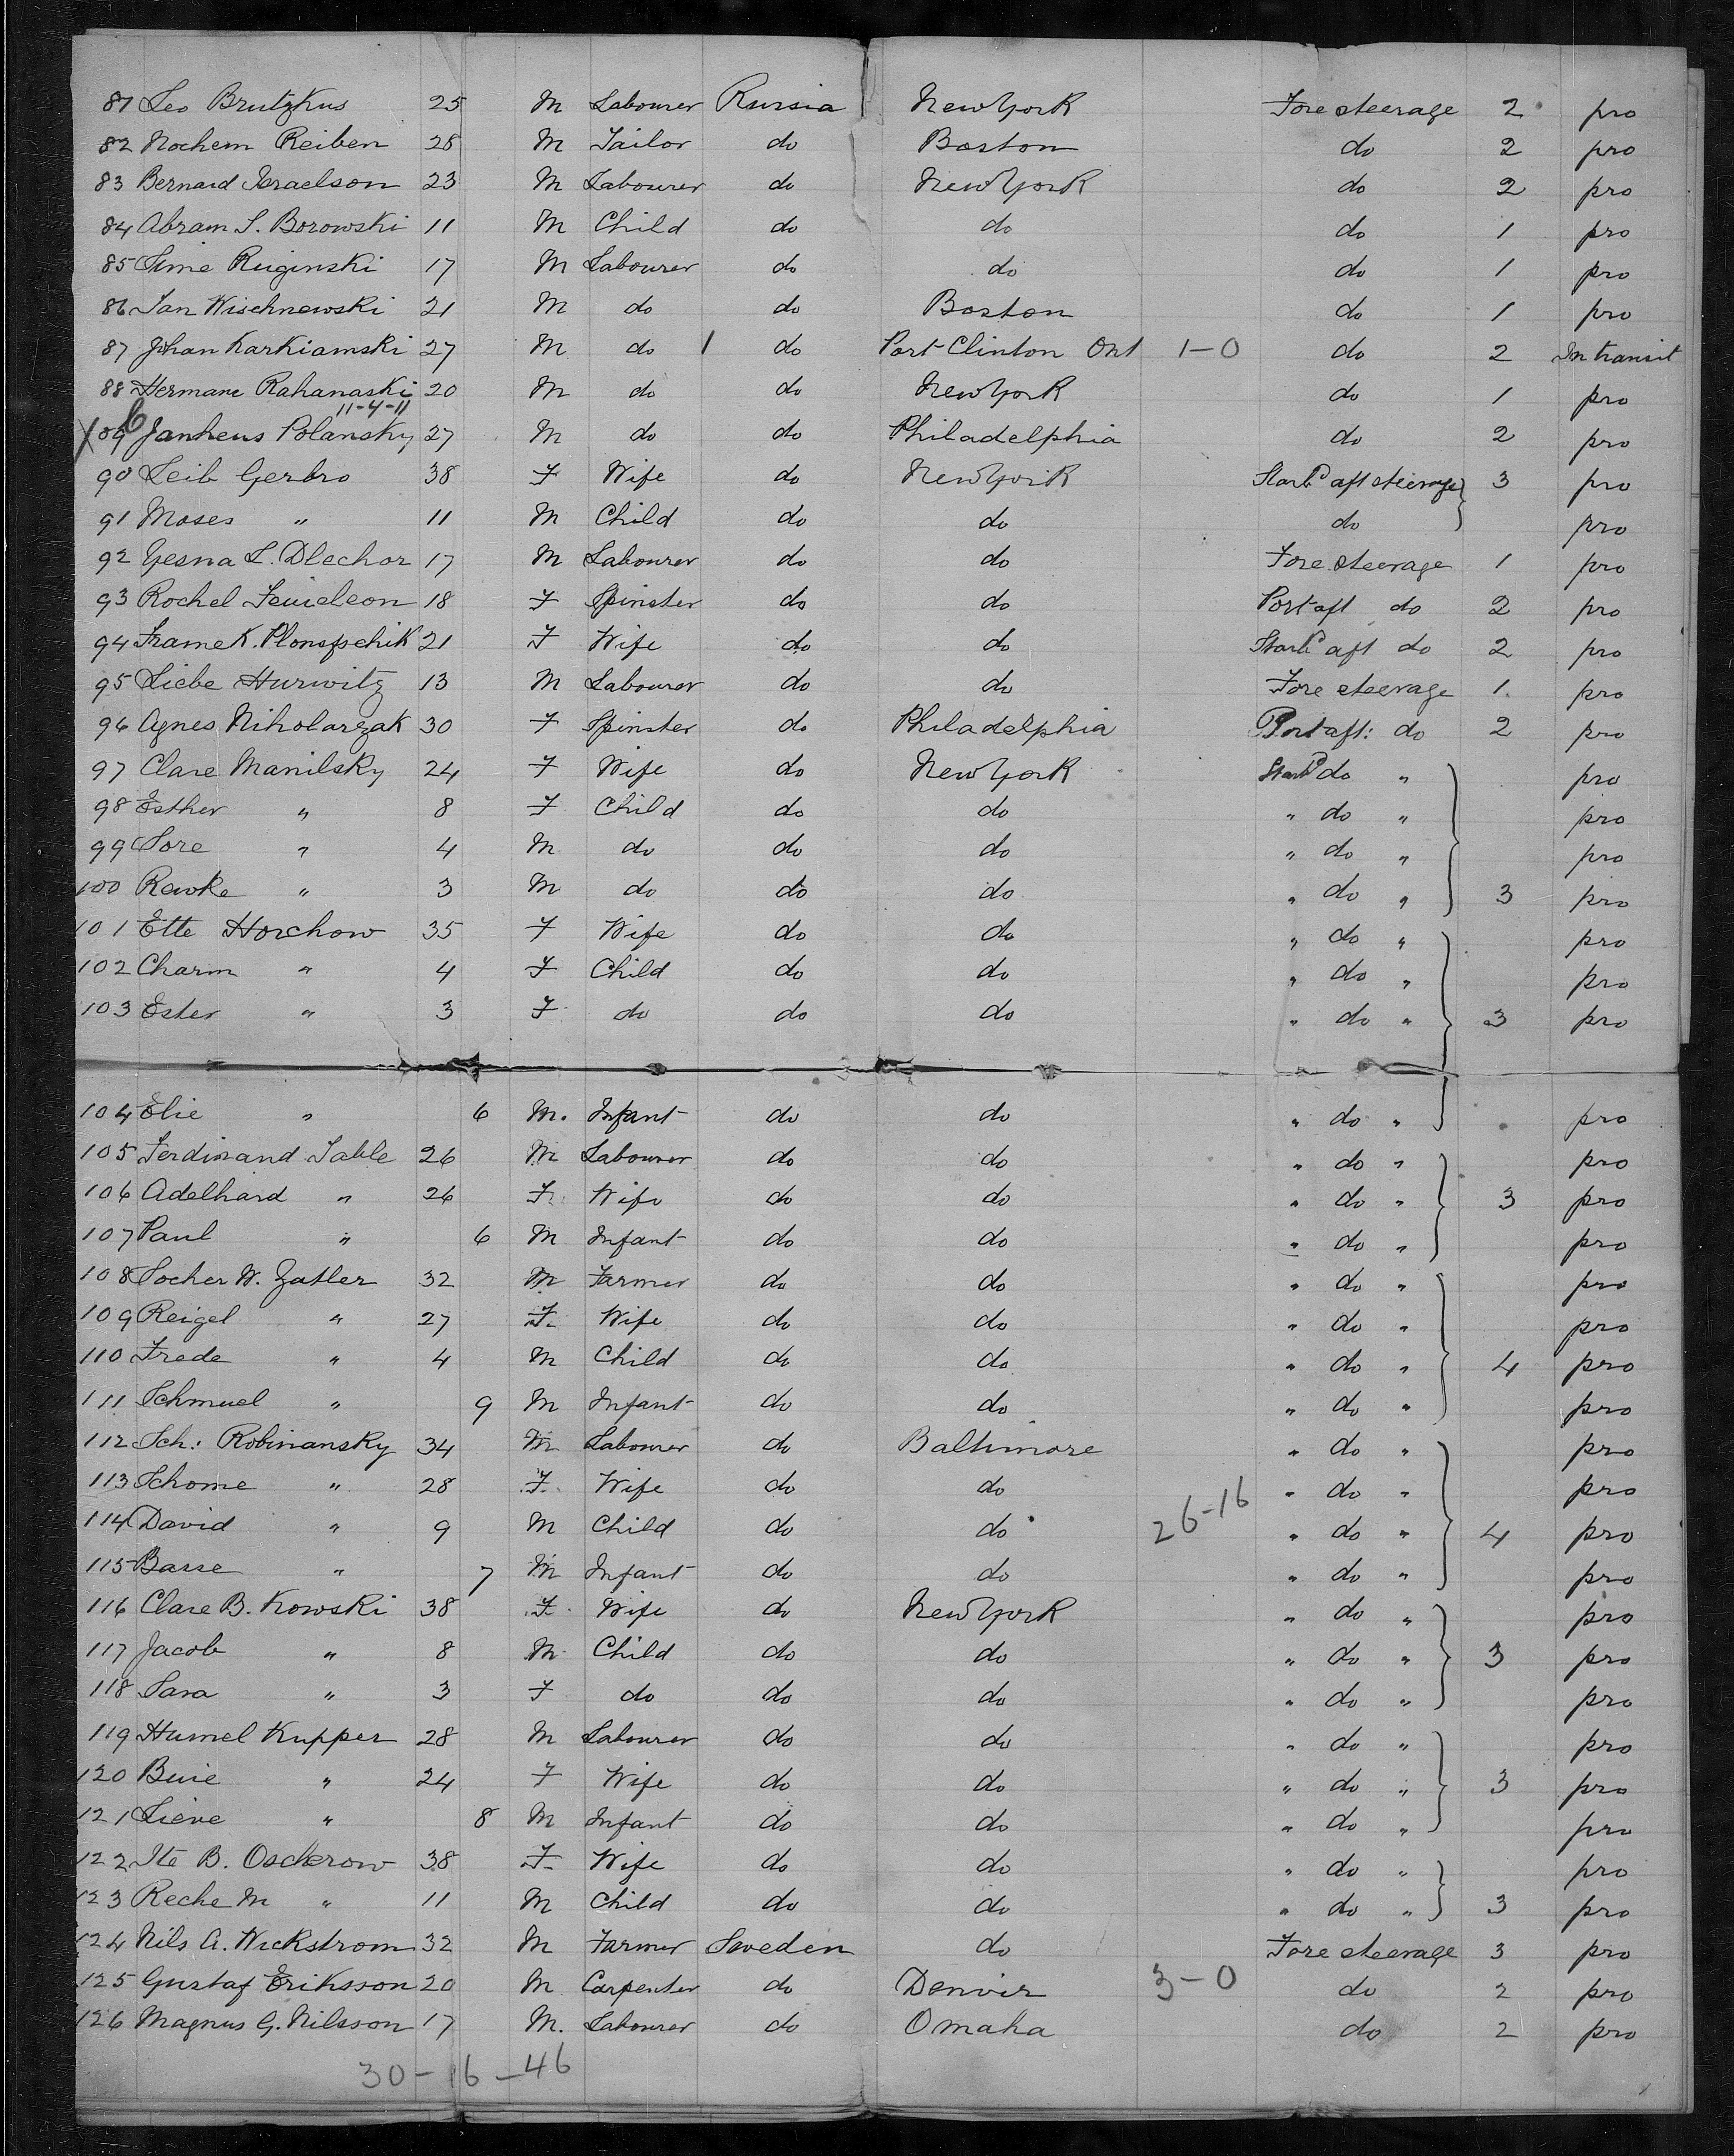 81 Leo Brutzkus 25 M Labourer Russia New York Fore steerage 2 pro
82 Nochem Reiben 28 M Tailor do Boston do 2 pro
83 Bernard Israelson 23 M Labourer do New York do 2 pro
84 Abram S. Borowski 11 M Child do do do 1 pro
85 Sime Ruginski 17 M Labourer do do do 1 pro
86 Jan Wischnewski 21 M do do Boston do 1 pro
87 Johan Karkiamski 27 M do 1 do Port Clinton Ont 1-0 do 2 In transit
88 Hermane Rahanaski 20 M do do New York do 1 pro
11-4-11
X 89 Jankeus Polansky 27 M do do Philadelphia do 2 pro
90 Leib Gerbro 38 F Wife do New York Starbd aft steerage 3 pro
91 Moses " 11 M Child do do do pro
92 Yesna L. Dlechor 17 M Labourer do do Fore steerage 1 pro
93 Rochel Feuieleon 18 F Spinster do do Port aft do 2 pro
94 Frame K. 21 F Wife do do Starbd aft do 2 pro
95 Liebe Hurwitz 13 M Labourer do do Fore steerage 1 pro
96 Agnes Niholarzak 30 F Spinster do Philadelphia Port aft: do 2 pro
97 Clare Manilsky 24 F Wife do New York Starbd do " pro
98 Esther " 8 F Child do do " do " pro
99 Sore " 4 M do do do " do " pro
100 Rewke " 3 M do do do " do " 3 pro
101 Ette Horchow 35 F Wife do do " do " pro
102 Charm " 4 F Child do do " do " pro
103 Ester " 3 F do do do " do " 3 pro
104 Elie " 6 M. Infant do do " do " pro
105 Ferdinand Table 26 M Labourer do do " do " pro
106 Adelhard " 26 F Wife do do " do " 3 pro
107 Paul " 6 M Infant do do " do " pro
108 Socher W. Zatler 32 M Farmer do do " do " pro
109 Reigel " 27 F Wife do do " do " pro
110 Frede " 4 M Child do do " do " 4 pro
111 Schmuel " 9 M Infant do do " do " pro
112 Sch: Robinansky 34 M Labourer do Baltimore " do " pro
113 Schome " 28 F Wife do do " do " pro
114 David " 9 M Child do do 26-16 " do " 4 pro
115 Basse " 7 M Infant do do " do " pro
116 Clare B. Kowski 38 F Wife do New York " do " pro
117 Jacob " 8 M Child do do " do " 3 pro
118 Sara " 3 F do do do " do " pro
119 Humel Kupper 28 M Labourer do do " do " pro
120 Buie " 24 F Wife do do " do " 3 pro
121 Lieve " 8 M Infant do do " do " pro
122 Ite B. Oscherow 38 F Wife do do " do " pro
123 Reche M " 11 M Child do do " do " 3 pro
124 Nils A. Wickstrom 32 M Farmer Sweden do Fore steerage 3 pro
125 Gustaf Eriksson 20 M Carpenter do Denvir 3-0 do 2 pro
126 Magnus G. Nilsson 17 M. Labourer do Omaha do 2 pro
30-16-46